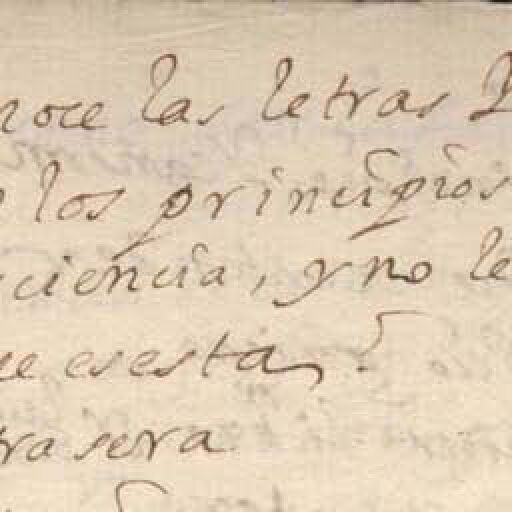 noce las letras
los principios
ciencia, y no le
ue es esta?
tra sera